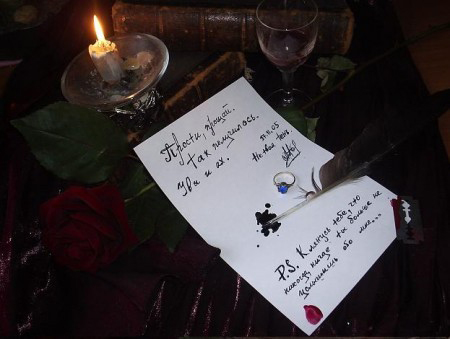 Прости, прощай.
Так получилось.
Увы и ах.
Не твоя
P.S. Клянусь тебе, что
никогда, нигде ты больше не
услышишь обо мне...